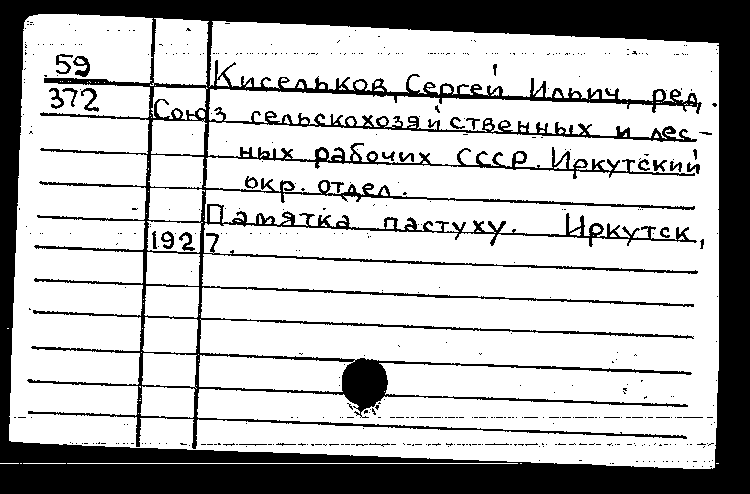 59
372
Кисельков, Сергей Ильич, ред.
Союз сельскохозяйственных и лес-
ных рабочих СССР. Иркутский
окр. отдел.
Памятка пастуху. Иркутск,
1927.